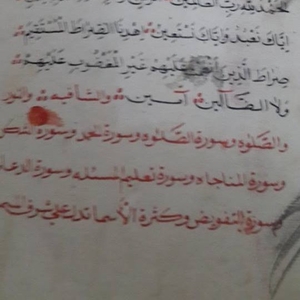 العالمين
إياك نعبد وإياك نستعين اهدنا الصراط المستقيم
صراط الذين أنعمت عليهم غير المغضوب عليهم
ولا الضالين آمين والشافيه والنور
والصلوه وسورة الصلوه وسورة الحمد وسورة الشكر
وسورة المناجاه وسورة تعليم المسئله وسورة الدعا
وسورة التفويض وكثرة الأسما تدل على شرف